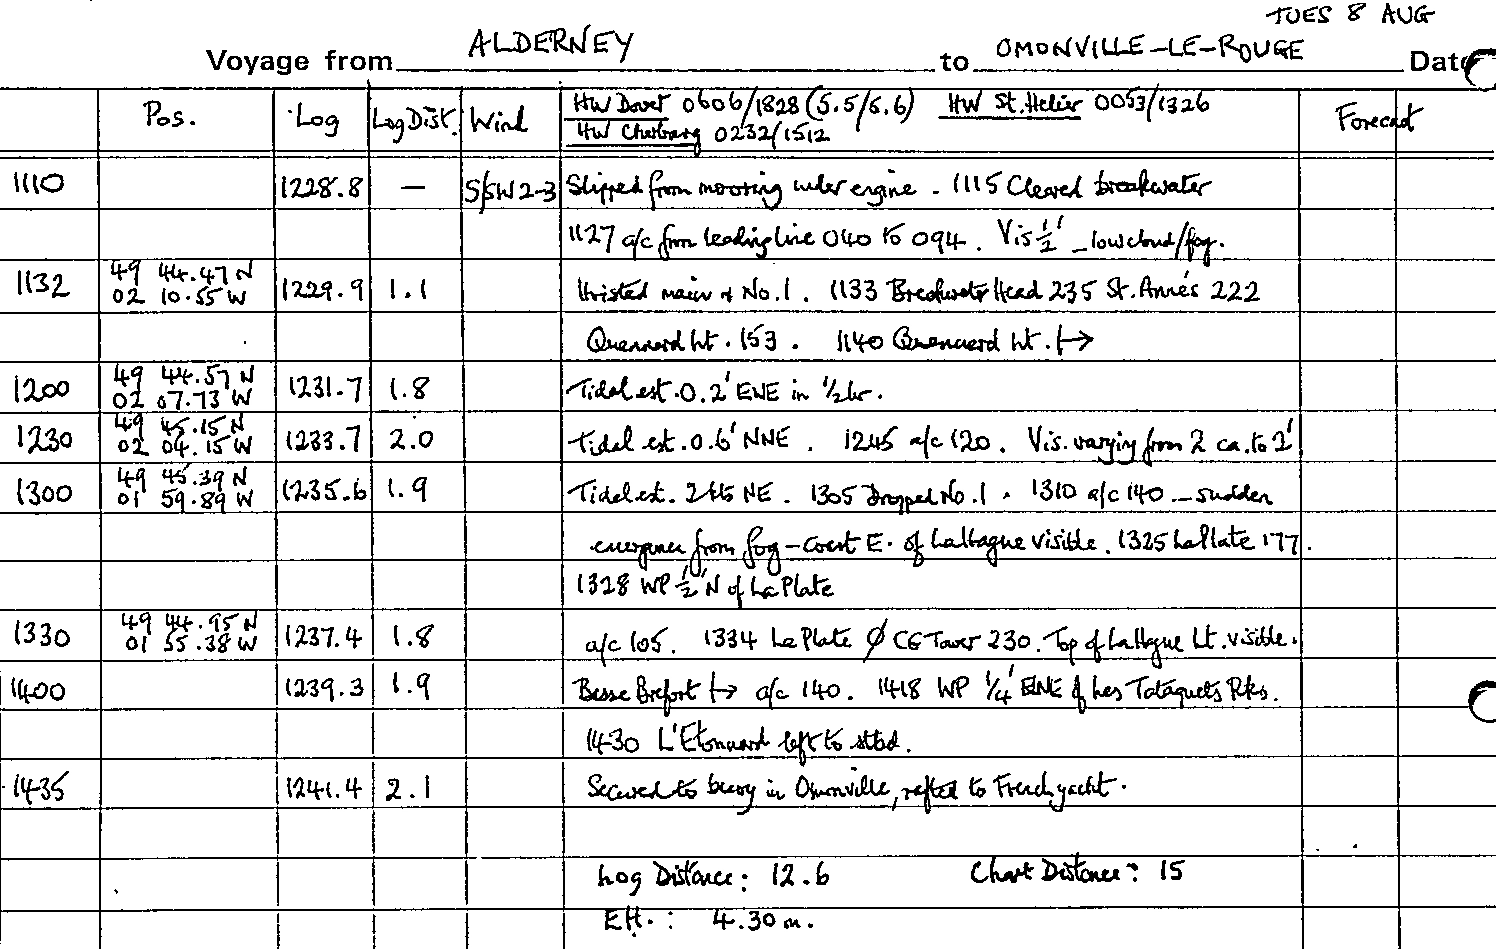 TUES 8 AUG
Voyage from ALDERNEY to OMONVILLE-LE-ROUGE Date
Pos. Log Log Dist. Wind HW Dover 0606/1828 (5.5/5.6) HW St. Helier 0053/1326 Forecast
HW Cherbourg 0232/1512
1110 1228.8 — S/SW 2-3 Slipped from mooring under engine. 1115 Cleared breakwater
1127 a/c from leading line 040 to 094. Vis 1/2' - low cloud/fog.
1132 49 44.47 N 1229.9 1.1 Hoisted main & No.1. 1133 Breakwater Head 235 St. Anne's 222
02 10.55 W
Quenard Lt. 153. 1140 Quenard Lt. ↦
1200 49 44.57 N 1231.7 1.8 Tidal est. 0.2' ENE in 1/2 hr.
02 07.73 W
1230 49 45.15 N 1233.7 2.0 Tidal est. 0.6' NNE. 1245 a/c 120. Vis. varying from 2 ca. to 2'
02 04.15 W
1300 49 45.39 N 1235.6 1.9 Tidal est. 2 kts NE. 1305 Dropped No.1. 1310 a/c 140 - sudden
01 59.89 W
emergence from fog - Coast E. of La Hague visible. 1325 La Plate 177.
1328 WP 1/2' N of La Plate
1330 49 44.95 N 1237.4 1.8 a/c 105. 1334 La Plate Ø CG Tower 230. Top of La Hague Lt. visible.
01 55.38 W
1400 1239.3 1.9 Basse Brefort ↦ a/c 140. 1418 WP 1/4' ENE of Les Tataquets Rks.
1430 L'Etonnard left to stbd.
1435 1241.4 2.1 Secured to buoy in Omonville, rafted to French yacht.
Log Distance: 12.6 Chart Distance: 15
4.30 m.